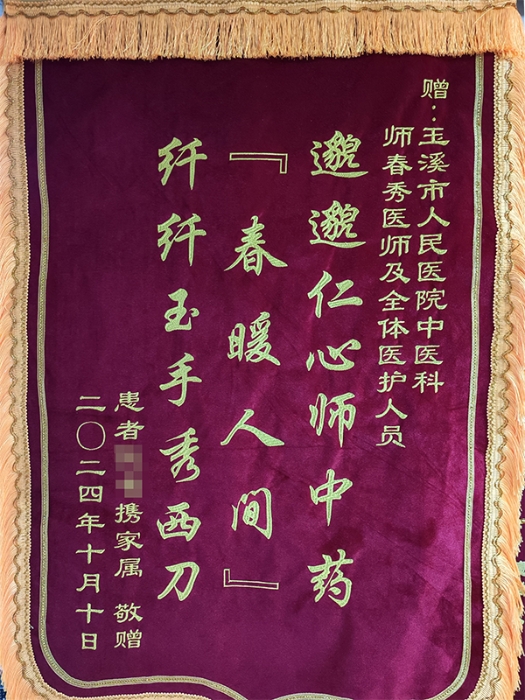 赠：玉溪市人民医院中医科
师春秀医师及全体医护人员
邈邈仁心师中药
『春暖人间』
纤纤玉手秀西刀
患者 携家属 敬赠
二〇二四年十月十日